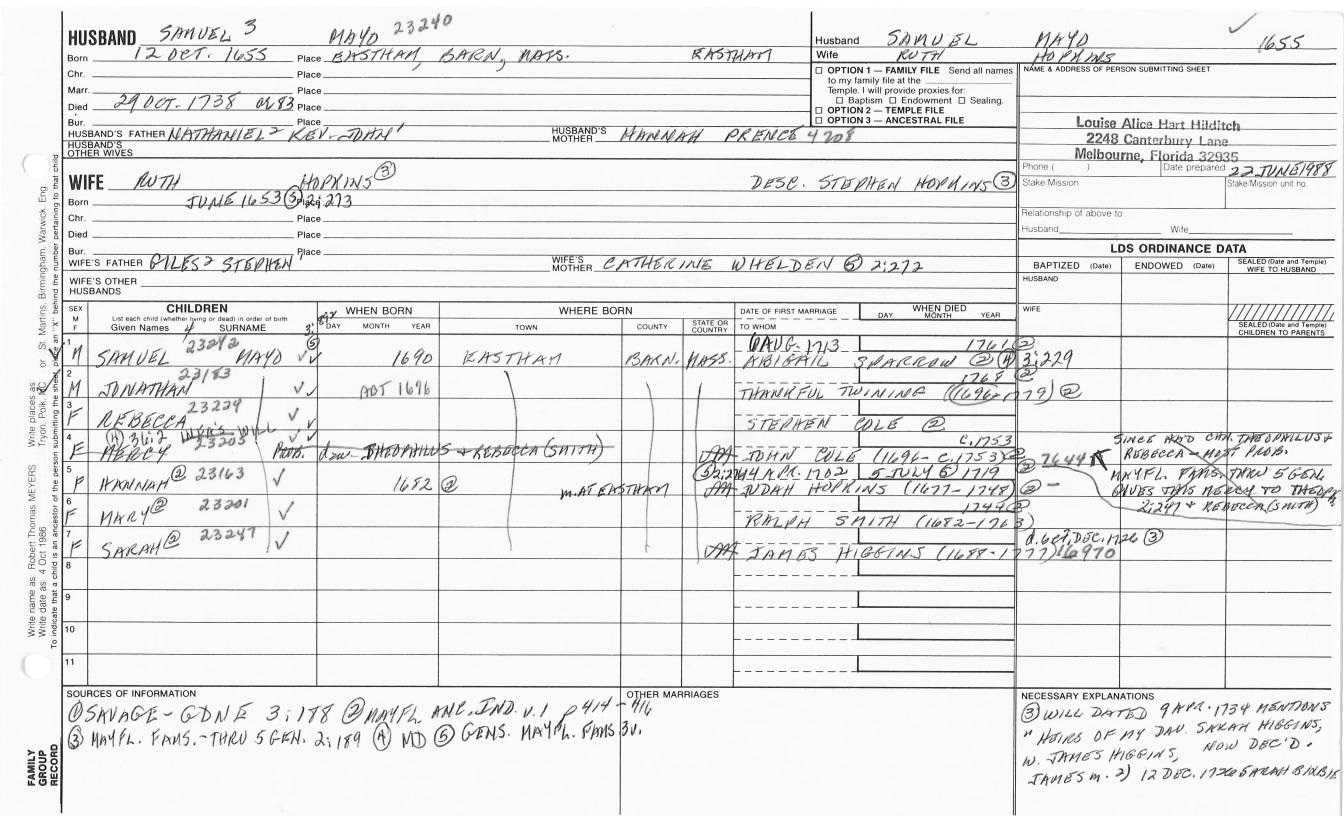 HUSBAND SAMUEL 3 MAYO 23240
Born 12 OCT. 1655 Place EASTHAM, BARN, MASS. EASTHAM
Chr. Place
Marr. Place
Died 29 OCT. 1738 Æ 83 Place
Bur. Place
HUSBAND'S FATHER NATHANIEL² REV. JOHN¹ HUSBAND'S MOTHER HANNAH PRENCE 4208
HUSBAND'S OTHER WIVES
Husband SAMUEL MAYO 1655
Wife RUTH HOPKINS
☐ OPTION 1 — FAMILY FILE Send all names
to my family file at the
Temple. I will provide proxies for:
☐ Baptism ☐ Endowment ☐ Sealing.
☐ OPTION 2 — TEMPLE FILE
☐ OPTION 3 — ANCESTRAL FILE
NAME & ADDRESS OF PERSON SUBMITTING SHEET
Louise Alice Hart Hilditch
2248 Canterbury Lane
Melbourne, Florida 32935
Phone ( ) Date prepared 22 JUNE 1988
Stake Mission Stake/Mission unit no.
Relationship of above to
Husband Wife
WIFE RUTH HOPKINS ③ DESC. STEPHEN HOPKINS ③
Born JUNE 1653 ⑤ 2:273 Place
Chr. Place
Died Place
Bur. Place
WIFE'S FATHER GILES² STEPHEN¹ WIFE'S MOTHER CATHERINE WHELDEN ⑤ 2:272
WIFE'S OTHER HUSBANDS
LDS ORDINANCE DATA
BAPTIZED (Date) ENDOWED (Date) SEALED (Date and Temple) WIFE TO HUSBAND
HUSBAND
WIFE
SEALED (Date and Temple) CHILDREN TO PARENTS
SEX M F
CHILDREN
List each child (whether living or dead) in order of birth
Given Names 4 SURNAME
WHEN BORN DAY MONTH YEAR
WHERE BORN TOWN COUNTY STATE OR COUNTRY
DATE OF FIRST MARRIAGE TO WHOM
WHEN DIED DAY MONTH YEAR
1 M SAMUEL 23242 MAYO ✓✓ 1690 EASTHAM BARN. MASS. AUG. 1713 1761 ②
ABIGAIL SPARROW ② ④ 3:229
2 M JONATHAN 23183 ✓✓ ABT 1696 1768 ②
THANKFUL TWINING (1696-1779) ②
3 F REBECCA 23229 ✓ STEPHEN COLE ②
4 F MERCY ④ 34:2 23205 ✓✓ PROB. dau. THEOPHILUS & REBECCA (SMITH) C.1753
JOHN COLE (1696-C.1753) ② 7644
5 F HANNAH ② 23163 ✓ 1682 ② m. AT EASTHAM 4 APR. 1702 5 JULY ⑤ 1719
JUDAH HOPKINS (1677-1748) ② -
6 F MARY ② 23201 ✓ 1744 ②
RALPH SMITH (1682-1763)
7 F SARAH ② 23247 ✓ d. bef. DEC. 1726 ③
JAMES HIGGINS (1688-1777) 16970
8
9
10
11
SINCE HAD CHN. THEOPHILUS &
REBECCA - MOST PROB.
MAYFL. FAMS. THRU 5 GEN.
GIVES THIS MERCY TO THEOPH.
2:247 & REBECCA (SMITH)
SOURCES OF INFORMATION
① SAVAGE - GDNE 3:188 ② MAYFL ANC. IND. V.1 p 414-416
③ MAYFL. FAMS. - THRU 5 GEN. 2:189 ④ MD ⑤ GENS. MAYFL. FAMS 3V.
OTHER MARRIAGES
NECESSARY EXPLANATIONS
③ WILL DATED 9 APR. 1734 MENTIONS
"HEIRS OF MY DAU. SARAH HIGGINS,
W. JAMES HIGGINS, NOW DEC'D.
JAMES m. 2) 12 DEC. 1726 SARAH BIXBIE
FAMILY GROUP RECORD
Write name as: Robert Thomas MEYERS Write places as: Tryon, Polk, NC or St. Martins, Birmingham, Warwick, Eng.
Write date as: 4 Oct 1986